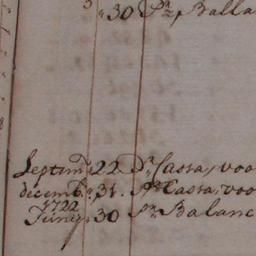 30 Pr Balla
Septemb: 22 Pr Cassa, voo
decemb: 31. Pr Cassa, voo
1722
Junij 30 Pr Balanc